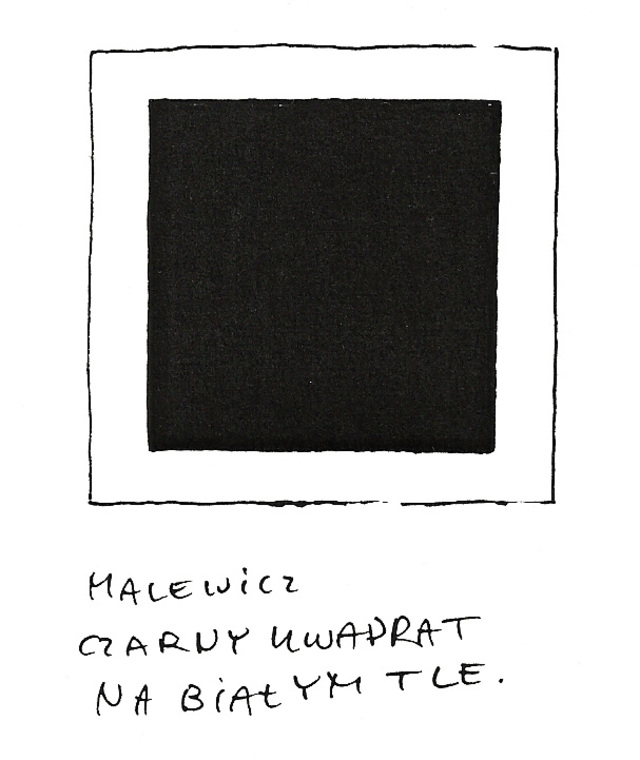 MALEWiCZ
CZARNY KWADRAT
NA BiAŁYM TLE.